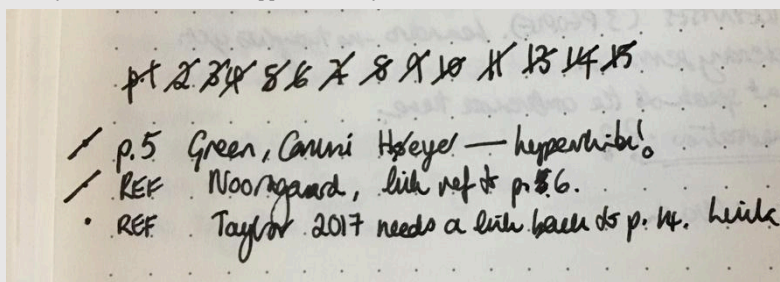 p1 2 3 4 5 6 7 8 9 10 11 13 14 15
p.5 Green, Canini Høeyer — hyperlinks!
REF Noorgaard, link ref to p. 6.
REF Taylor 2017 needs a link back to p. 14. Link